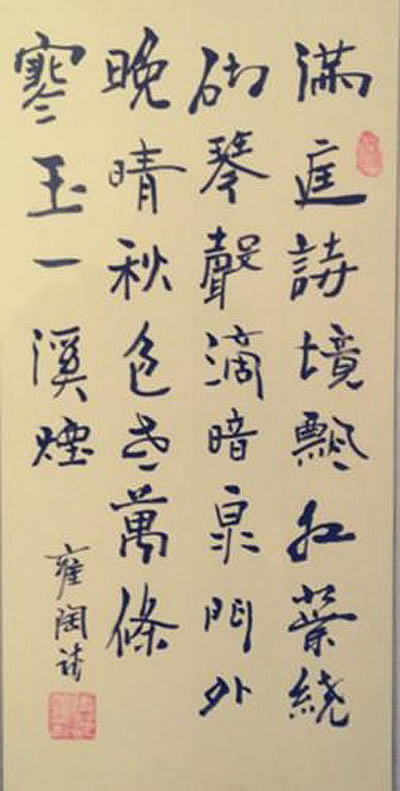 滿庭詩境飄紅葉繞
砌琴聲滴暗泉門外
晚晴秋色老萬條
寒玉一溪煙
雍陶詩